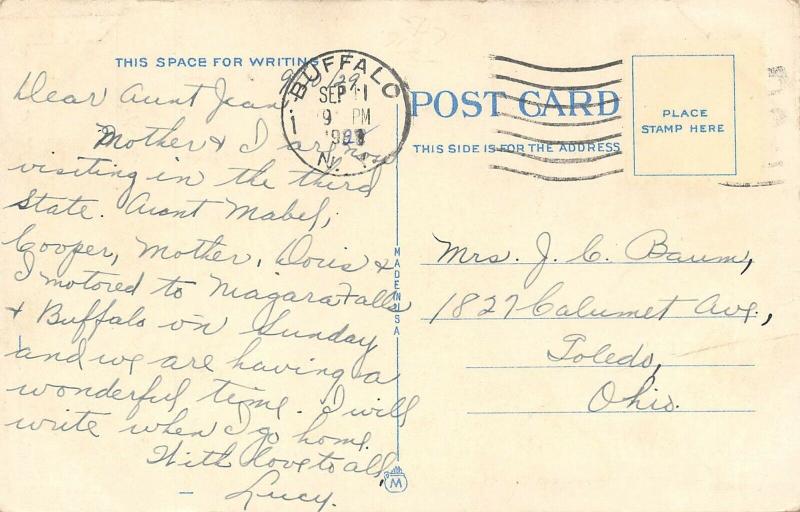 THIS SPACE FOR WRITING
9/10/29
Dear Aunt Jean
Mother & I are now
visiting in the third
State. Aunt Mabel,
Cooper, Mother, Doris &
I motored to Niagara Falls
& Buffalo on Sunday
and we are having a
wonderful time. I will
write when I go home.
With love to all,
Lucy.
BUFFALO
SEP 11
9 PM
N.Y.
MADE IN USA
POST CARD
THIS SIDE IS FOR THE ADDRESS
PLACE
STAMP HERE
Mrs. J. C. Baum,
1827 Calumet Ave.,
Toledo,
Ohio.
M